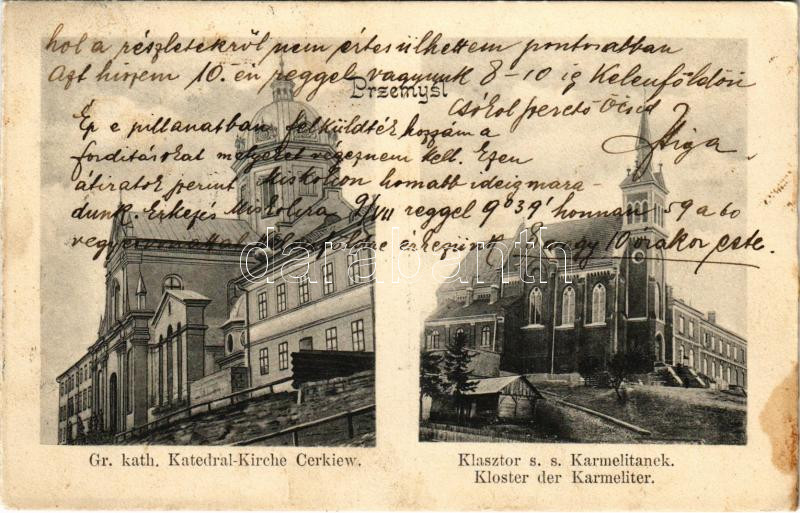 hol a részletekről nem értesülhettem pontosabban
Azt hiszem 10.-én reggel vagyunk 8-10 ig Kelenföldön
Przemyśl
Csókol szerető Öcséd
Ép e pillanatban felküldték hozzám a
fordításokat melyeket végeznem kell. Ezen
átiratok szerint Miskolcon homabb ideig mara-
dunk. Érkezés Miskolcra 9/VII reggel 9°39' honnan 59 a 60
érkezünk 8 vagy 10 órakor este.
darabanth.com
Gr. kath. Katedral-Kirche Cerkiew.
Klasztor s. s. Karmelitanek.
Kloster der Karmeliter.